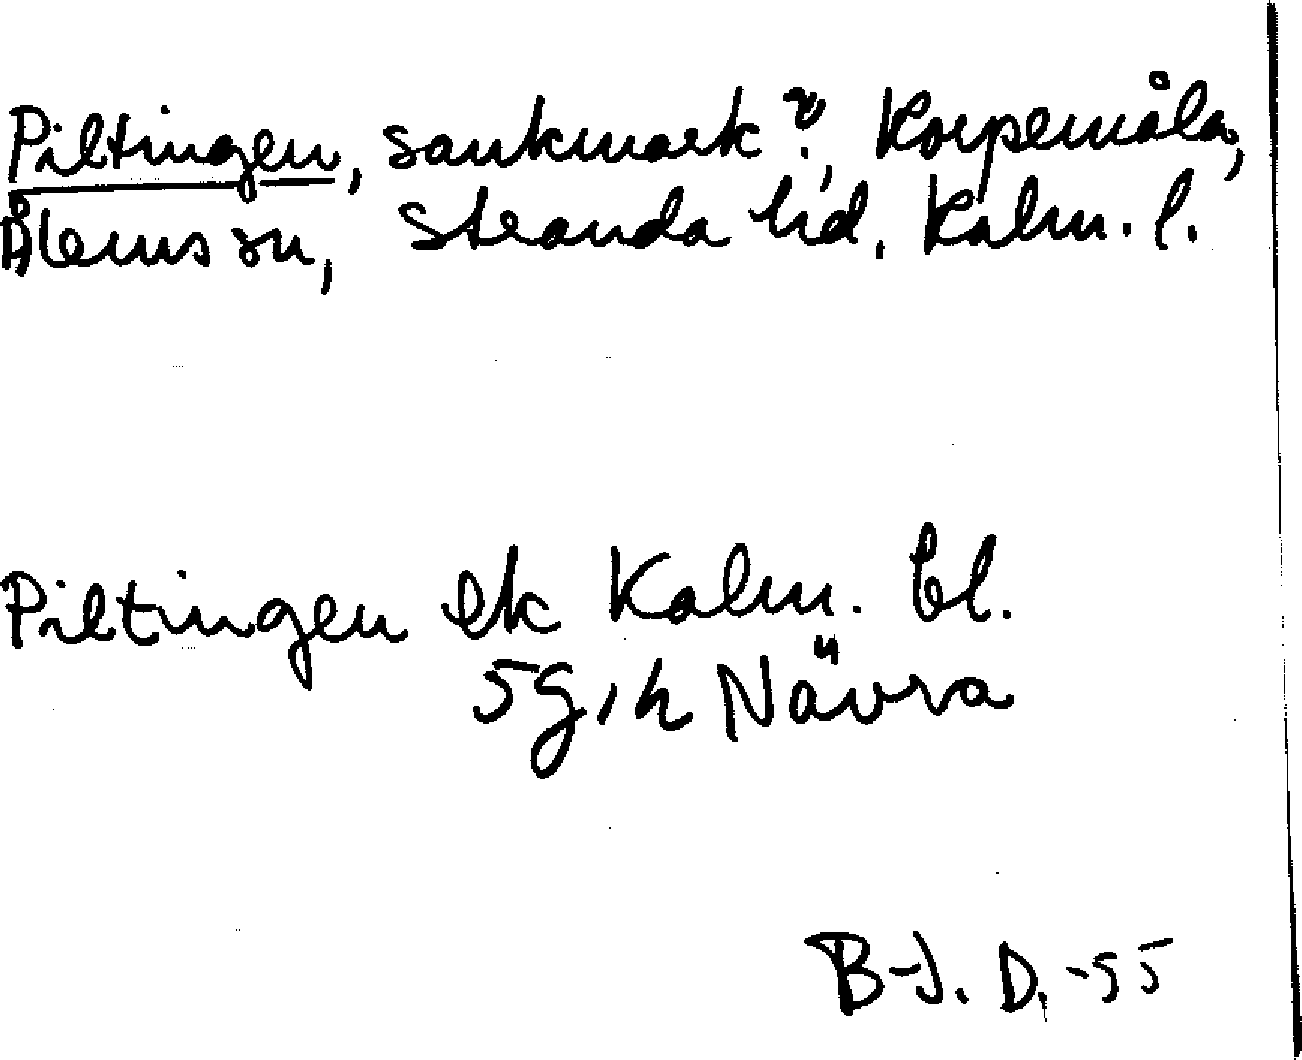 Piltingen, sankmark?, Korpemåla,
Ålems sn, Stranda hd, Kalm. l.
Piltingen ek Kalm. bl.
5g,h Nävra
B-J. D. -55